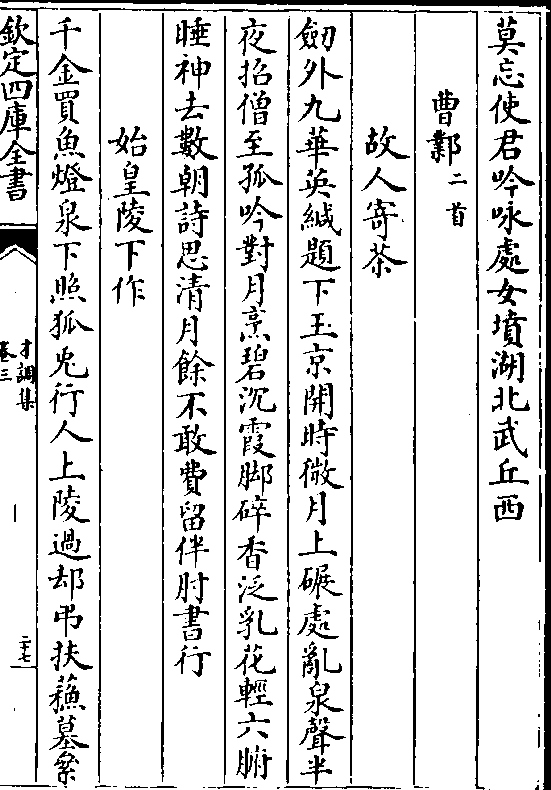 莫忘使君吟咏處女墳湖北武丘西
曹鄴二首
故人寄茶
劒外九華英緘題下玉京開時微月上碾處亂泉聲半
夜招僧至孤吟對月烹碧沉霞脚碎香泛乳花輕六腑
睡神去數朝詩思清月餘不敢費留伴肘書行
始皇陵下作
千金買魚燈泉下照狐兎行人上陵過却弔扶蘓墓纍
欽定四庫全書
才調集
卷三
二十七